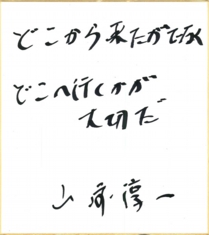 どこから来たかでなく
どこへ行くかが
大切だ
山 淳一